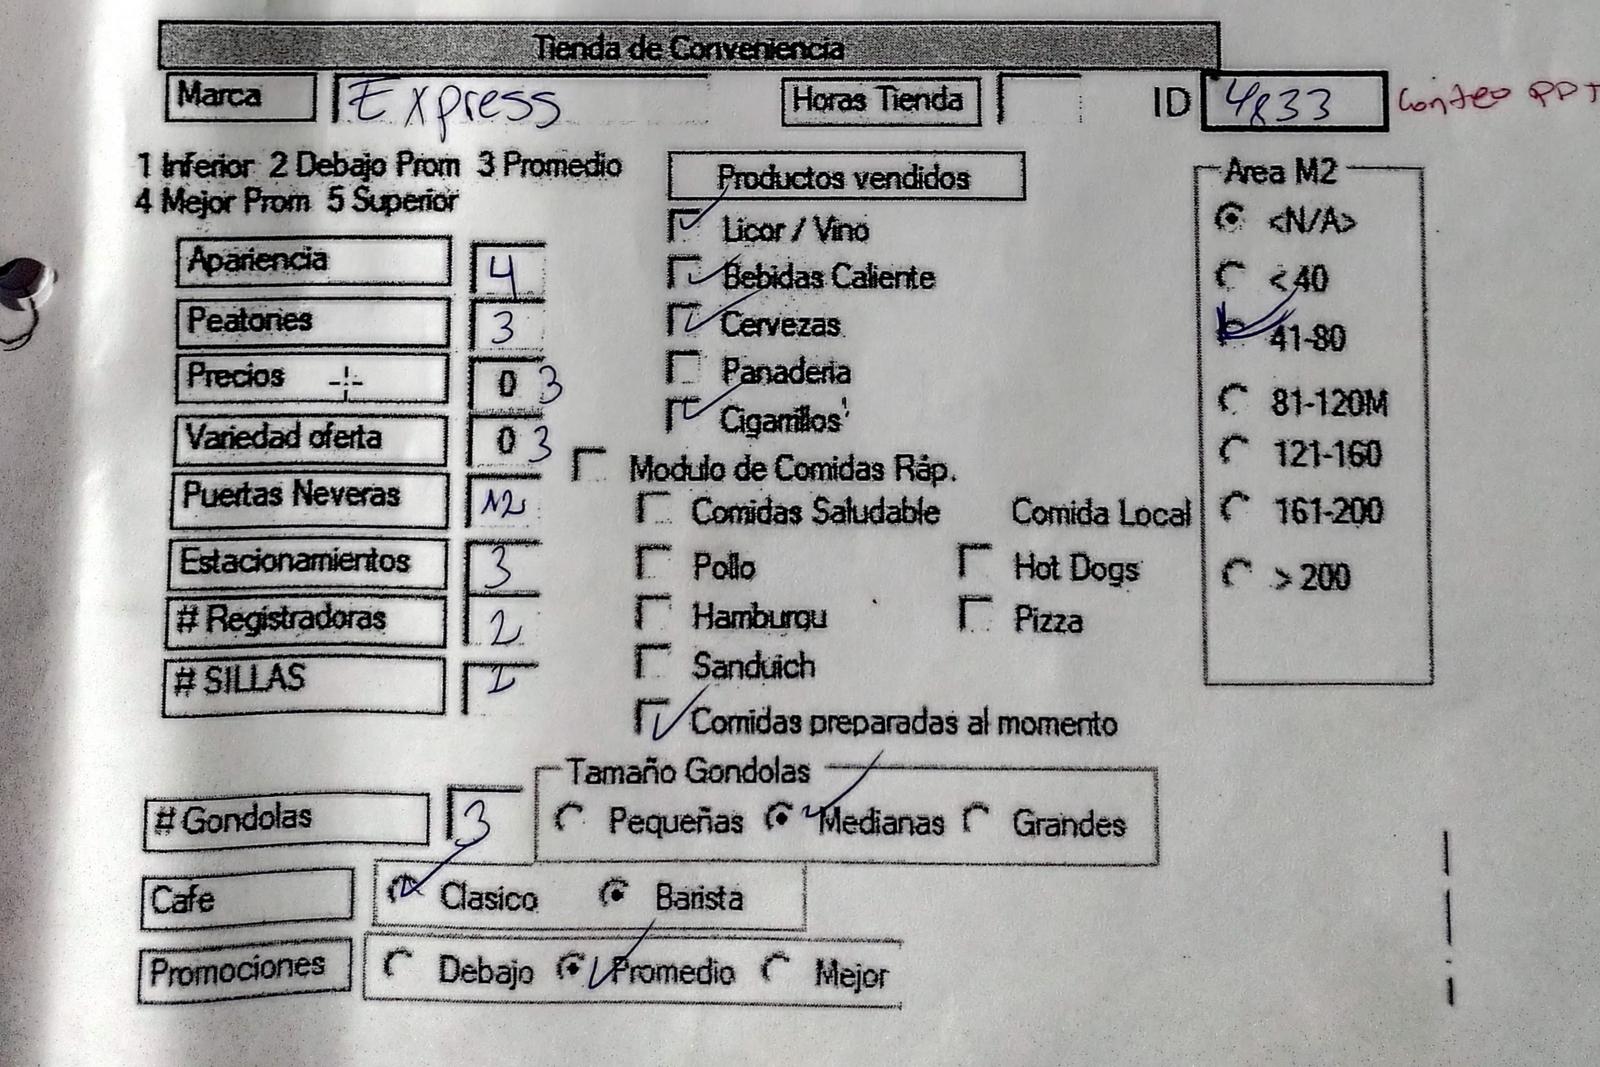 Tienda de Conveniencia
Marca Express Horas Tienda ID 4833 Conteo PPT
1 Inferior 2 Debajo Prom 3 Promedio
4 Mejor Prom 5 Superior
Productos vendidos
Area M2
Licor / Vino
<N/A>
Apariencia 4
Bebidas Caliente
< 40
Peatones 3
Cervezas
41-80
Precios 0 3
Panaderia
81-120M
Variedad oferta 0 3
Cigarrillos
121-160
Modulo de Comidas Ráp.
Puertas Neveras 12
Comidas Saludable Comida Local
161-200
Estacionamientos 3
Pollo Hot Dogs
> 200
# Registradoras 2
Hamburgu Pizza
# SILLAS
Sanduich
Comidas preparadas al momento
Tamaño Gondolas
# Gondolas 3 Pequeñas Medianas Grandes
Cafe Clasico Barista
Promociones Debajo Promedio Mejor